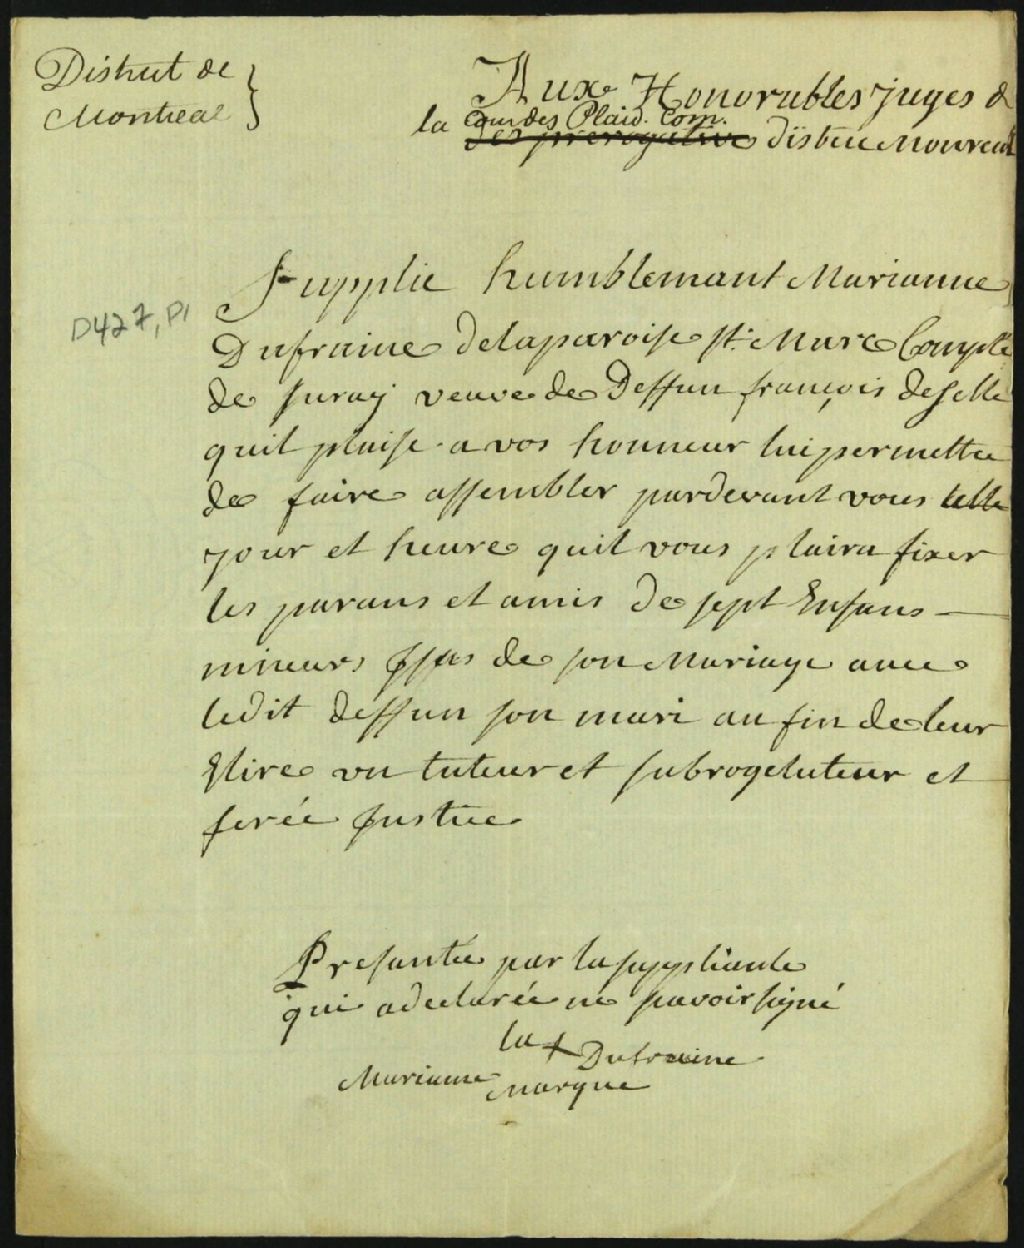 District de
Montreal }
Aux Honorables juges d
la Cour des Plaid. Com.
des prerogative district Monreal
D427, P1
Supplie humblemant Marianne
Dufraine de la paroise St. Marc Compté
de Suray veuve de Deffun françois deselle
quil plaise a vos honneur lui permettre
de faire assembler pardevant vous telle
jour et heure quil vous plaira fixer
les parans et amis de sept Enfans —
mineurs issus de son Mariage avec
ledit deffun son mari au fin de leur
Elire un tuteur et subrogetuteur et
ferée Justice
Presantée par la suppliante
qui a declarée ne savoir signé
la + Dufraine
Marianne marque